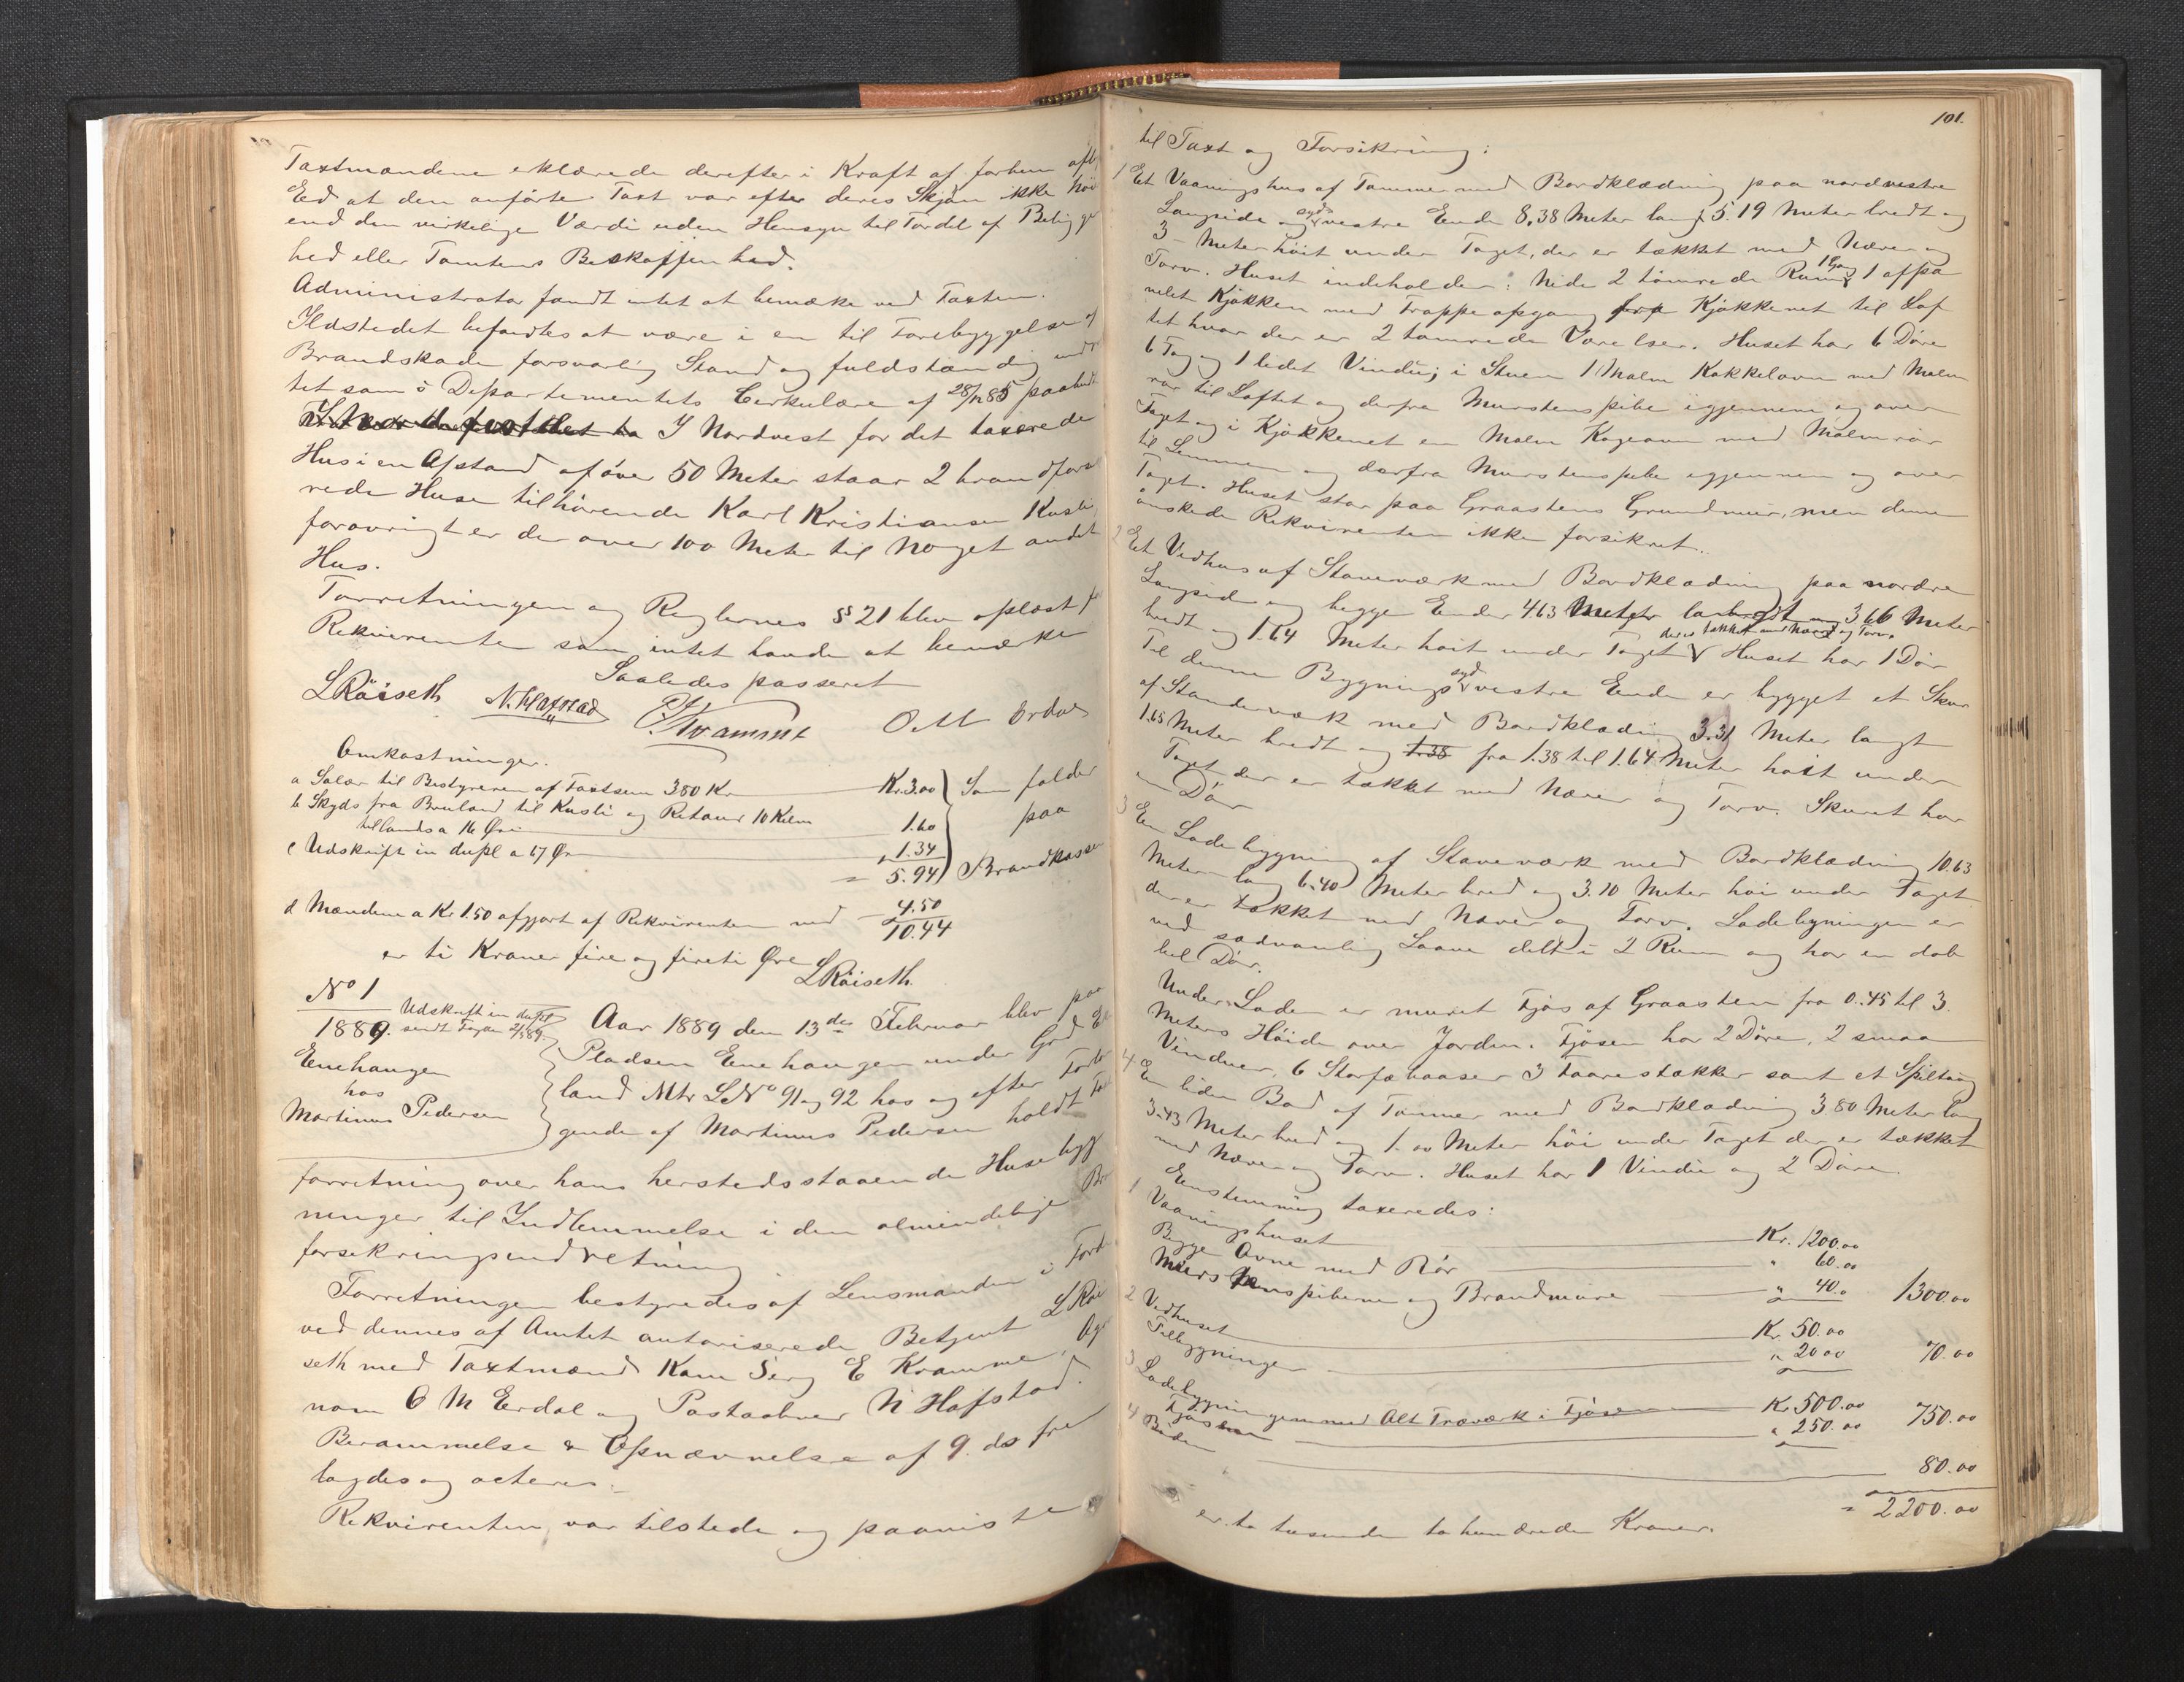 Taxtmændene erklærede derefter i Kraft af forhen afl
Ed at den anførte Taxt var efter deres Skjøn ikke høi
end den virkelige Værdi uden Hensyn til Fordel af Belig
hed eller Tomtens Beskaffenhed.
Administrator fandt intet at bemærke ved Taxten.
Ildstedet befandtes at være i en til Forebyggelse af
Brandskade forsvarlig Stand og fuldstændig
tet som i Departementets Cirkulære af 28/11 85 paabudt
I Nordvest for det taxerede
Hus i en Afstand af over 50 Meter staar 2 brandforsik
rede Huse tilhørende Karl Kristiansen Kusli
forøvrigt er der over 100 Meter til noget andet
Hus.
Forretningen og Reglernes § 21 blev oplæst for
Rekvirenten som intet havde at bemærke
Saaledes passeret
L Röiseth N. Hafstad E Kramme O. M Erdal
Omkostninger.
a Salær til Bestyreren af Taxtsum 380 Kr Kr. 3.00 Som falder
b Skyds fra Bruland til Kusli og Retour 10 Kilm paa
tillands a 16 Øre 1.60
c Udskrift in dupl a 67 Øre " 1.34
= 5.94 Brandkassen
d Mændene a Kr 1.50 afgjort af Rekvirenten med 4.50
10.44
er ti Kroner fire og fireti Øre
L Röiseth.
No 1
1889. Udskrift in dupl
Aar 1889 den 13de Februar blev paa
Enehaugen
hos
Martinus Pedersen
Pladsen Enehaugen under Grd
land Mtr LNo 91 og 92 hos og efter Forlan
gende af Martinus Pedersen holdt
forretning over hans herstedsstaaende Husebygg
ninger til Indlemmelse i den almindelige Br
forsikringsindretning
Forretningen bestyredes af Lensmanden i Førde
ved dennes af Amtet autoriserede Betjent L Röi
seth med Taxtmænd Kam Serg E Kramme,
nom O M Erdal og Postaabner N Hafstad.
Berammelse & Opnævnelse af 9. ds fre
lagdes og acteres.
Rekvirenten var tilstede og paaviste
101.
til Taxt og Forsikring:
1 Et Vaaningshus af Tømmer med Bordklædning paa nordvestre
Langside og sydvestre Ende 8.38 Meter langt 5.19 Meter bredt og
3 - Meter høit under Taget, der er tækket med Næver og
Torv. Huset indeholder: Nede 2 tømrede Rum, 1 Gang 1 afpa
nelet Kjøkken med Trappeopgang fra Kjøkkenet til Lof
tet hvor der er 2 tømrede Værelser. Huset har 6 Døre
6 Fag og 1 lidet Vindu; i Stuen 1 Malm Kakkelovn med Malm
rør til Loftet og derfra Murstenspibe igjennem og over
Taget og i Kjøkkenet en Malm Kogeovn med Malmrør
til Lemmen og derfra Murstenspibe igjennem og over
Taget. Huset står paa Graastens Grundmur, men denne
ønskede Rekvirenten ikke forsikret.
2 Et Vedhus af Staveværk med Bordklædning paa nordre
Langside og begge Ender 4.63 Meter langt og 3.66 Meter
bredt og 1.64 Meter høit under Taget der er tækket med Næver og Torv. Huset har 1 Dør
Til denne Bygnings sydvestre Ende er bygget et Skur
af Standerværk med Bordklædning 3.31 Meter langt
1.65 Meter bredt og 1.38 fra 1.38 til 1.64 Meter høit under
Taget der er tækket med Næver og Torv. Skuret har
en Dør
3 En Ladebygning af Staveværk med Bordklædning 10.63
Meter lang 6.40 Meter bred og 3.70 Meter høi under Taget
der er tækket med Næver og Torv. Ladebygningen er
ved sædvanlig Laave delt i 2 Rum og har en dob
bel Dør.
Under Laden er muret Fjøs af Graasten fra 0.45 til 3.
Meters Høide over Jorden. Fjøsen har 2 Døre, 2 smaa
Vinduer, 6 Storfæbaaser 3 Faarestækker samt et Spiltaug
4 En liden Bod af Tømmer med Bordklædning 3.80 Meter lang
3.43 Meter bred og 1.00 Meter høi under Taget der er tækket
med Næver og Torv. Huset har 1 Vindu og 2 Døre.
Eenstemmig taxeredes:
1 Vaaningshuset Kr. 1200.00
Begge Ovne med Rør " 60.00
Murstenspiberne og Brandmure " 40.0 1300.00
2 Vedhuset Kr. 50.00
Tilbygningen " 20.00 70.00
3 Ladebygningen med Alt Træværk i Fjøsen Kr. 500.00
Fjøsen " 250.00 750.00
4 Boden 80.00
= 2200.00
er to tusende to hundrede Kroner.